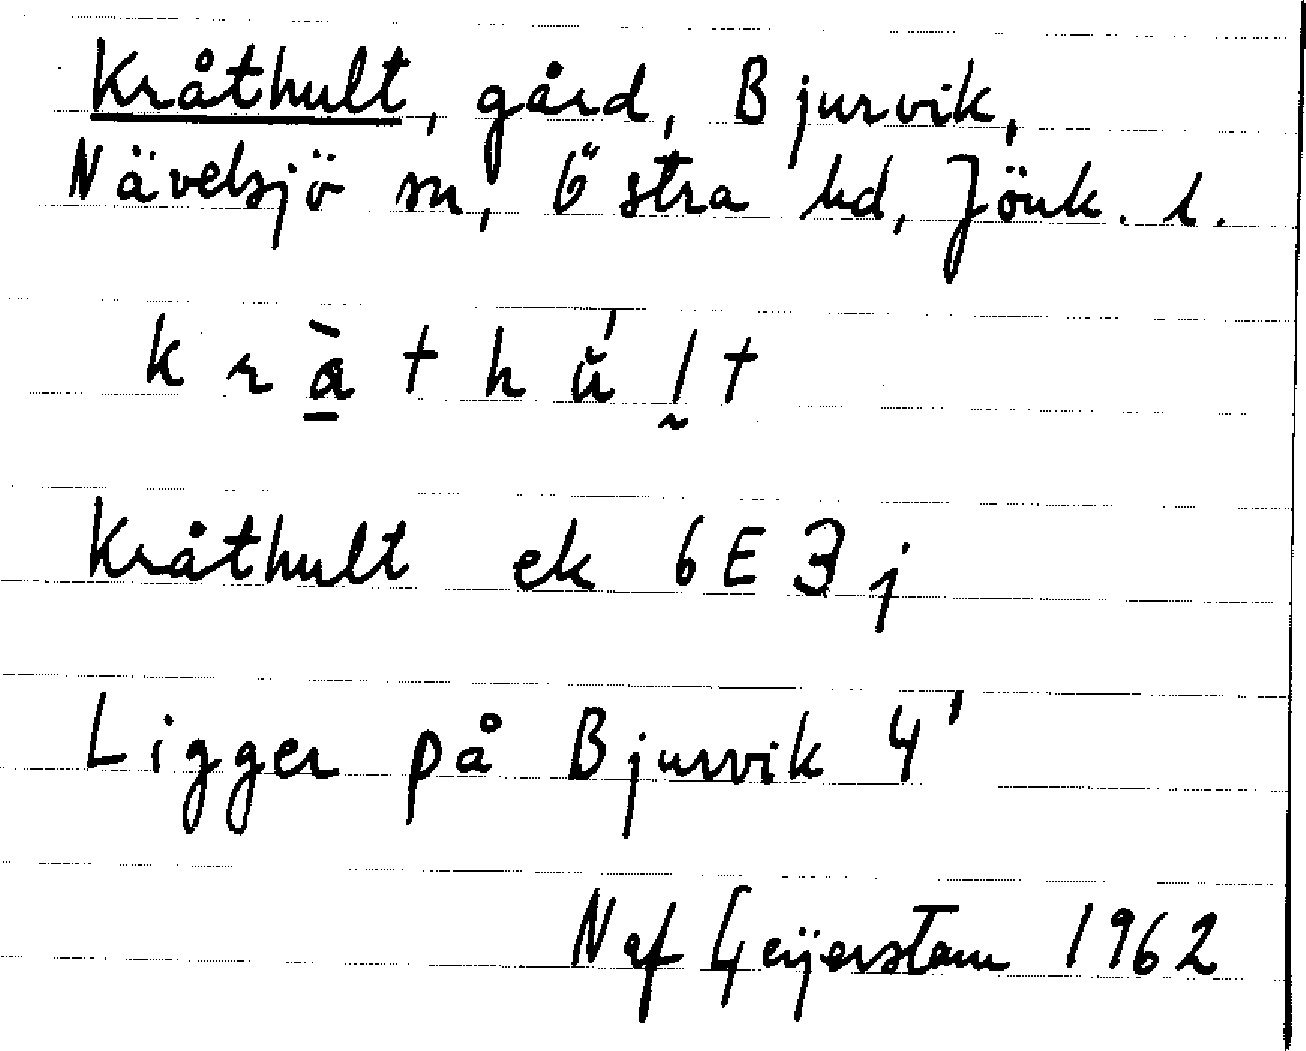 Kråthult, gård, Bjurvik,
Nävelsjö sn, Östra hd, Jönk. l.
k r à̱ t h ŭ́ l̰ t
Kråthult ek 6E 3j
Ligger på Bjurvik 4¹
N af Geijerstam 1962